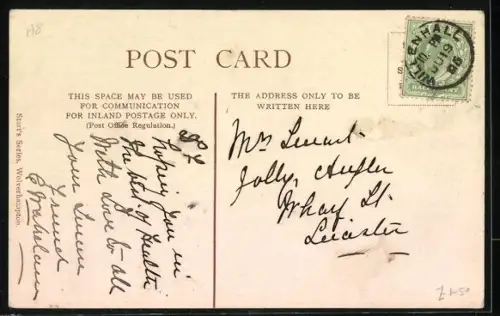 POST CARD
THIS SPACE MAY BE USED
FOR COMMUNICATION
FOR INLAND POSTAGE ONLY.
(Post Office Regulation.)
THE ADDRESS ONLY TO BE
WRITTEN HERE
WILLENHALL
JU 19
HALFPENNY
Series, Wolverhampton.
Hoping you in
the best of Health
With Love to all
Your Sincere
Friend
Mrs
Jolly Angler
Wharf St.
Leicester
£1.50